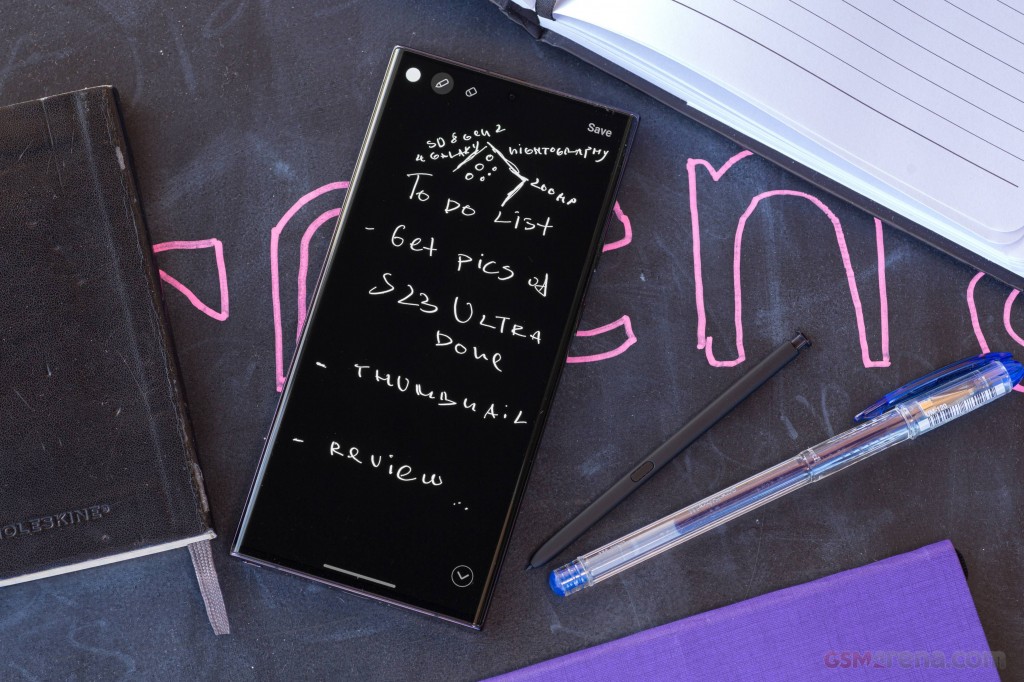 Save
SD 8 Gen 2
4 GALAXY
NIGHTOGRAPHY
200MP
To Do List
- Get pics of
S23 ULTRA
Done
- THUMBNAIL
- Review...
MOLESKINE®
GSMarena.com